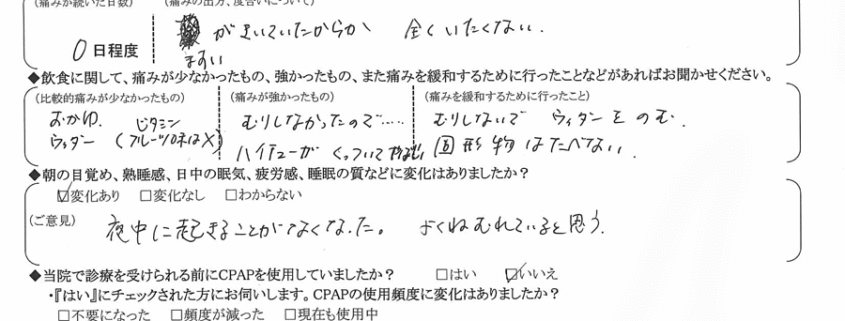 (痛みが続いた日数) (痛みの出方、度合いについて)
がきいていたからか 全くいたくない.
ますい
0日程度
◆飲食に関して、痛みが少なかったもの、強かったもの、また痛みを緩和するために行ったことなどがあればお聞かせください。
(比較的痛みが少なかったもの) (痛みが強かったもの) (痛みを緩和するために行ったこと)
おかゆ. ビタミン むりしなかったので..... むりしないで ウィダーをのむ.
ウィダー (フルーツ味は×) ハイチューが くっついて 固形物はたべない.
◆朝の目覚め、熟睡感、日中の眠気、疲労感、睡眠の質などに変化はありましたか?
☑変化あり □変化なし □わからない
(ご意見) 夜中に起きることがなくなった。 よくねむれていると思う.
◆当院で診療を受けられる前にCPAPを使用していましたか? □はい ☑いいえ
・『はい』にチェックされた方にお伺いします。CPAPの使用頻度に変化はありましたか?
□不要になった □頻度が減った □現在も使用中